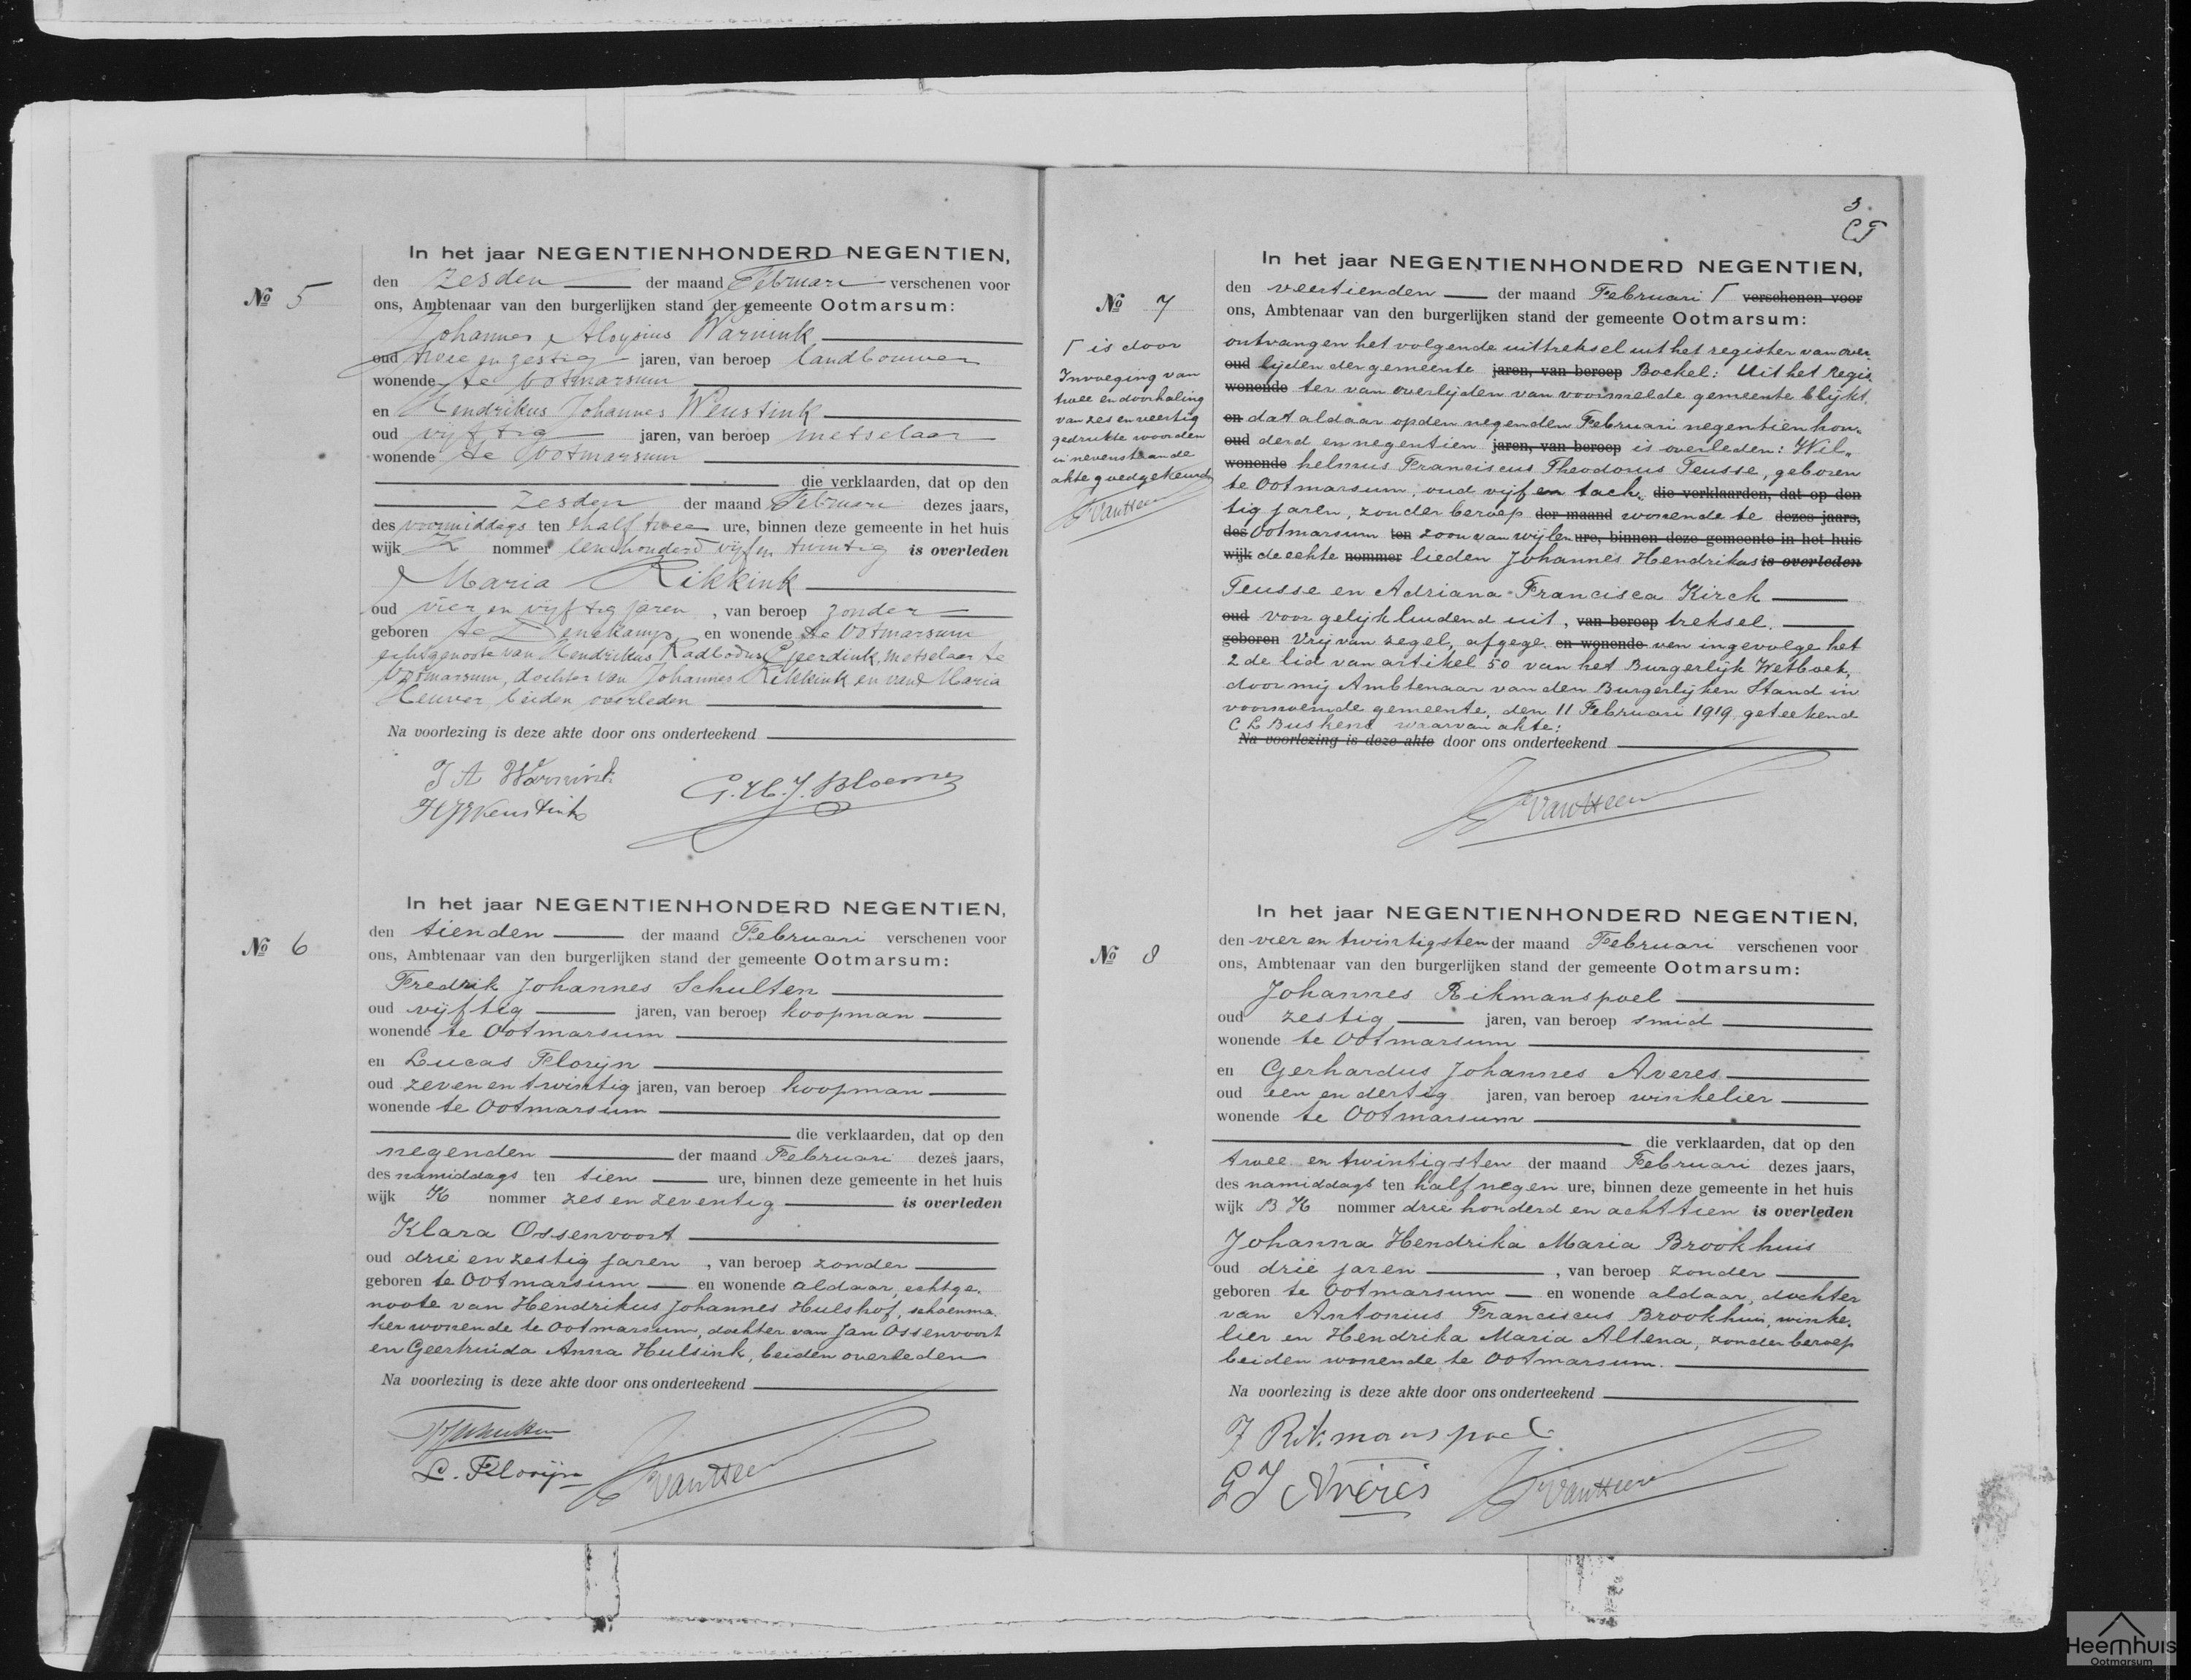 No 5
In het jaar NEGENTIENHONDERD NEGENTIEN,
den zesden der maand Februari verschenen voor
ons, Ambtenaar van den burgerlijken stand der gemeente Ootmarsum:
Johannes Aloysius Warnink
oud twee en zestig jaren, van beroep landbouwer
wonende te Ootmarsum
en Hendrikus Johannes Weustink
oud vijftig jaren, van beroep metselaar
wonende te Ootmarsum
die verklaarden, dat op den
zesden der maand Februari dezes jaars,
des voormiddags ten half twee ure, binnen deze gemeente in het huis
wijk K nommer een honderd vijf en twintig is overleden
Maria Rikkink
oud vier en vijftig jaren, van beroep zonder
geboren te Denekamp en wonende te Ootmarsum
echtgenoote van Hendrikus Radbodus Geerdink, metselaar te
Ootmarsum, dochter van Johannes Rikkink en van Maria
Heuver beiden overleden
Na voorlezing is deze akte door ons onderteekend
J A Warnink
HJWeustink
G.H.J. Bloemen
No 6
In het jaar NEGENTIENHONDERD NEGENTIEN,
den tienden der maand Februari verschenen voor
ons, Ambtenaar van den burgerlijken stand der gemeente Ootmarsum:
Fredrik Johannes Schulten
oud vijftig jaren, van beroep koopman
wonende te Ootmarsum
en Lucas Florijn
oud zeven en twintig jaren, van beroep koopman
wonende te Ootmarsum
die verklaarden, dat op den
negenden der maand Februari dezes jaars,
des namiddags ten tien ure, binnen deze gemeente in het huis
wijk K nommer zes en zeventig is overleden
Klara Ossenvoort
oud drie en zestig jaren, van beroep zonder
geboren te Ootmarsum en wonende aldaar, echtge-
noote van Hendrikus Johannes Hulshof, schoenma-
ker wonende te Ootmarsum, dochter van Jan Ossenvoort
en Geertruida Anna Hulsink, beiden overleden
Na voorlezing is deze akte door ons onderteekend
L. Florijn
VanHeen
3.
No 7
In het jaar NEGENTIENHONDERD NEGENTIEN,
den veertienden der maand Februari Γ verschenen voor
ons, Ambtenaar van den burgerlijken stand der gemeente Ootmarsum:
ontvangen het volgende uittreksel uit het register van over-
oud lijden der gemeente jaren, van beroep Boekel: Uit het regis-
wonende ter van overlijden van voormelde gemeente blijkt,
en dat aldaar op den negenden Februari negentien hon-
oud derd en negentien jaren, van beroep is overleden: Wil-
wonende helmus Franciscus Theodorus Teusse, geboren
te Ootmarsum, oud vijf en tach- die verklaarden, dat op den
tig jaren, zonder beroep der maand wonende te dezes jaars,
des Ootmarsum ten zoon van wijlen ure, binnen deze gemeente in het huis
wijk de echte nommer lieden Johannes Hendrikus is overleden
Teusse en Adriana Francisca Kirch
oud voor gelijkluidend uit, van beroep treksel.
geboren Vrij van zegel, afgege- en wonende ven ingevolge het
2de lid van artikel 50 van het Burgerlijk Wetboek,
door mij Ambtenaar van den Burgerlijken Stand in
voornoemde gemeente, den 11 Februari 1919, geteekend
C L Buskens waarvan akte:
Na voorlezing is deze akte door ons onderteekend
VanHeen
Γ is door
Invoeging van
twee en doorhaling
van zes en veertig
gedrukte woorden
in nevenstaande
akte goedgekeurd
VanHeen
No 8
In het jaar NEGENTIENHONDERD NEGENTIEN,
den vier en twintigsten der maand Februari verschenen voor
ons, Ambtenaar van den burgerlijken stand der gemeente Ootmarsum:
Johannes Rikmanspoel
oud zestig jaren, van beroep smid
wonende te Ootmarsum
en Gerhardus Johannes Averes
oud een en dertig jaren, van beroep winkelier
wonende te Ootmarsum
die verklaarden, dat op den
twee en twintigsten der maand Februari dezes jaars,
des namiddags ten half negen ure, binnen deze gemeente in het huis
wijk B H nommer drie honderd en achttien is overleden
Johanna Hendrika Maria Brookhuis
oud drie jaren, van beroep zonder
geboren te Ootmarsum en wonende aldaar, dochter
van Antonius Franciscus Brookhuis, winke-
lier en Hendrika Maria Altena, zonder beroep
beiden wonende te Ootmarsum.
Na voorlezing is deze akte door ons onderteekend
J Rikmanspoel
GJ Averes
VanHeen
Heemhuis
Ootmarsum